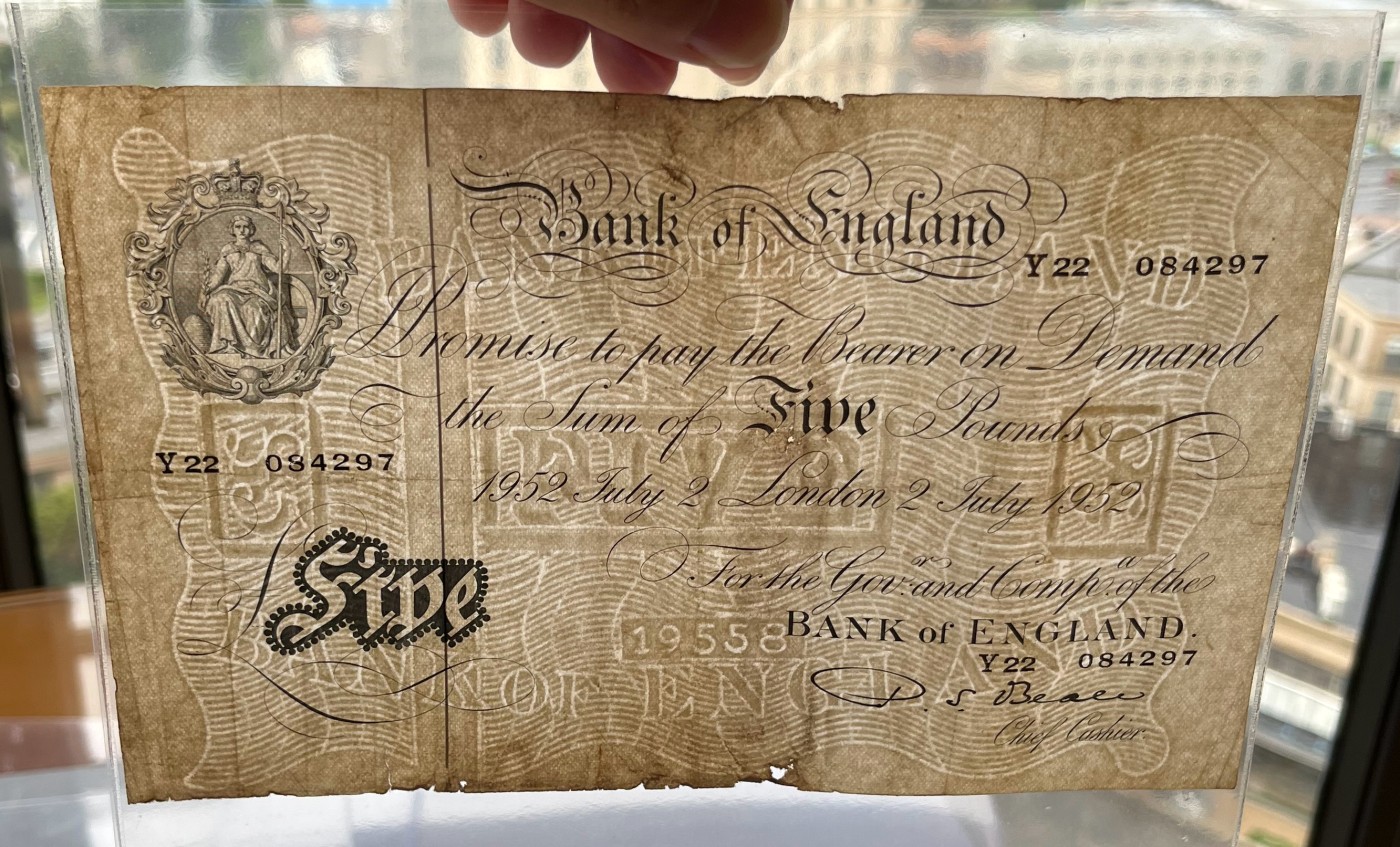 Bank of England
Y22 084297
I Promise to pay the Bearer on Demand
the Sum of Five Pounds
Y22 084297
1952 July 2 London 2 July 1952
For the Gov.r and Comp.a of the
Five
BANK of ENGLAND.
19558
Y22 084297
P. S. Beale
Chief Cashier.
BANK OF ENGLAND
£5
FIVE
£5
BANK OF ENGLAND